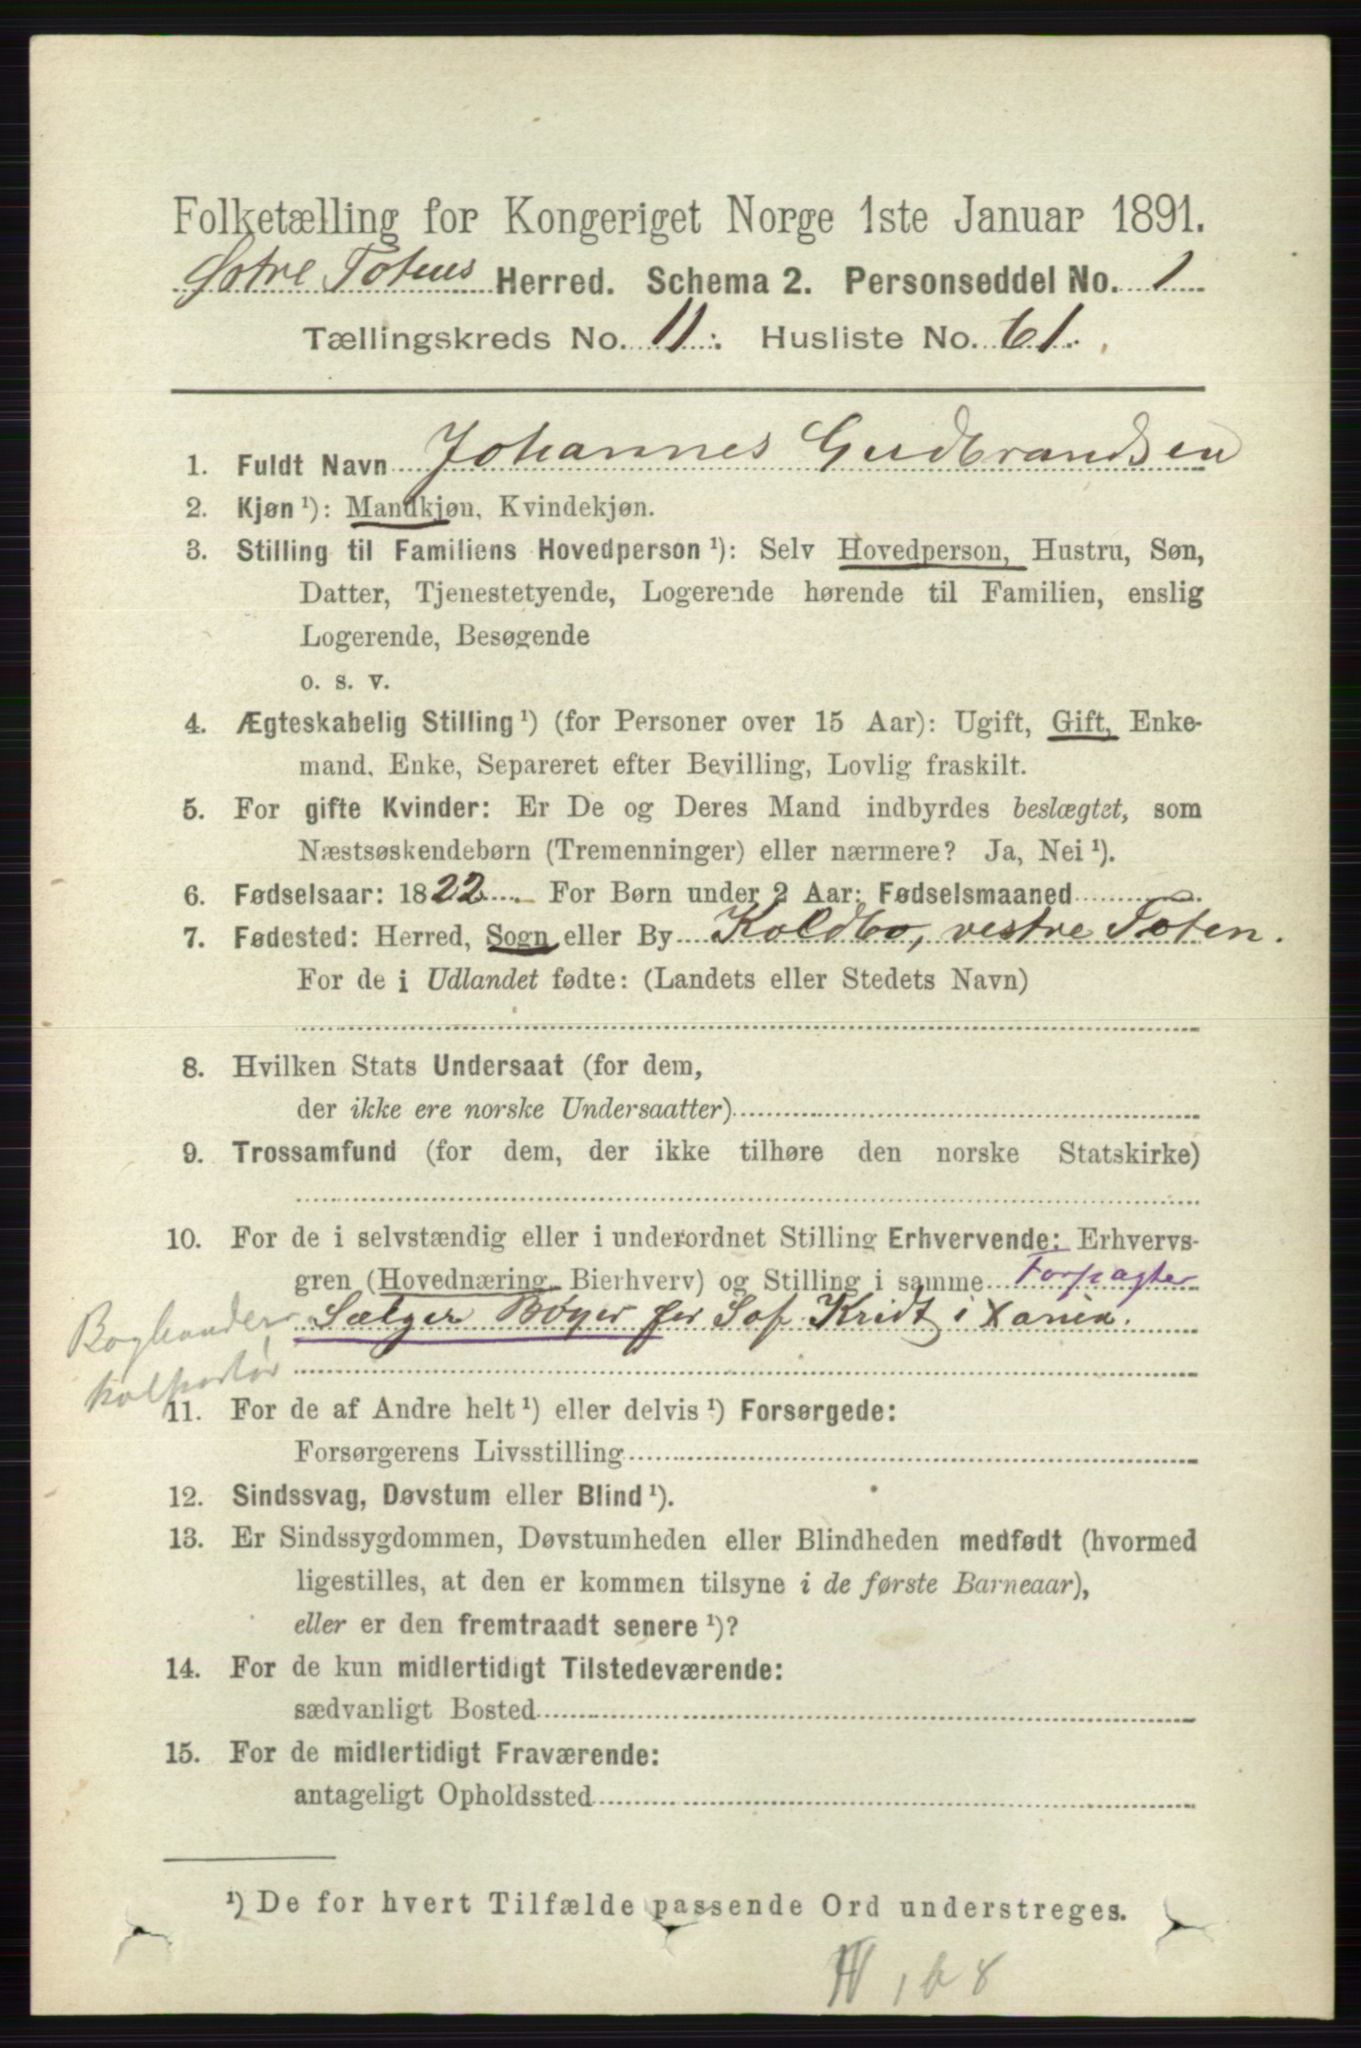 Folketælling for Kongeriget Norge 1ste Januar 1891.
Østre Totens Herred. Schema 2. Personseddel No. 1
Tællingskreds No. 11. Husliste No. 61.
1. Fuldt Navn Johannes Gudbrandsen
2. Kjøn ¹): Mandkjøn, Kvindekjøn.
3. Stilling til Familiens Hovedperson ¹): Selv Hovedperson, Hustru, Søn,
Datter, Tjenestetyende, Logerende hørende til Familien, enslig
Logerende, Besøgende
o. s. v.
4. Ægteskabelig Stilling ¹) (for Personer over 15 Aar): Ugift, Gift, Enke-
mand, Enke, Separeret efter Bevilling, Lovlig fraskilt.
5. For gifte Kvinder: Er De og Deres Mand indbyrdes beslægtet, som
Næstsøskendebørn (Tremenninger) eller nærmere? Ja, Nei ¹).
6. Fødselsaar: 1822. For Børn under 2 Aar: Fødselsmaaned
7. Fødested: Herred, Sogn eller By Koldbo, vestre Toten.
For de i Udlandet fødte: (Landets eller Stedets Navn)
8. Hvilken Stats Undersaat (for dem,
der ikke ere norske Undersaatter)
9. Trossamfund (for dem, der ikke tilhøre den norske Statskirke)
10. For de i selvstændig eller i underordnet Stilling Erhvervende: Erhvervs-
gren (Hovednæring, Bierhverv) og Stilling i samme Forpagter
Boghandler Sælger Bøger for Sof. Kridt i Xania.
kolportør
11. For de af Andre helt ¹) eller delvis ¹) Forsørgede:
Forsørgerens Livsstilling
12. Sindssvag, Døvstum eller Blind ¹).
13. Er Sindssygdommen, Døvstumheden eller Blindheden medfødt (hvormed
ligestilles, at den er kommen tilsyne i de første Barneaar),
eller er den fremtraadt senere ¹)?
14. For de kun midlertidigt Tilstedeværende:
sædvanligt Bosted
15. For de midlertidigt Fraværende:
antageligt Opholdssted
¹) De for hvert Tilfælde passende Ord understreges.